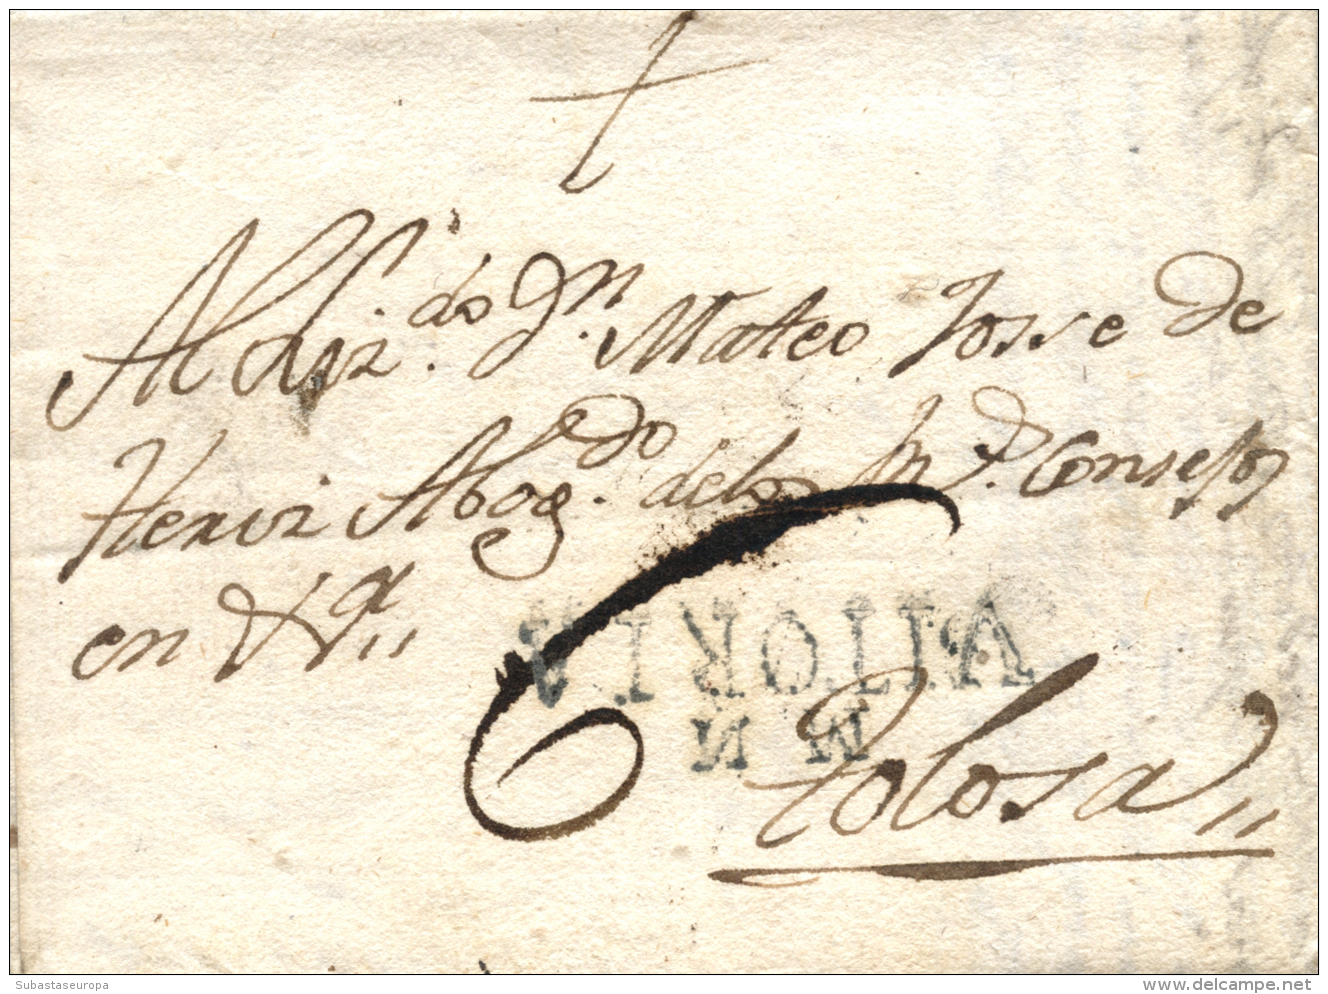 +
Al Liz.do Dn. Mateo Josse de
Hervi Abog.do delos Rs. Consejos
en Va.
6
VITORIA
M N
Tolosa
Subastaseuropa
www.delcampe.net